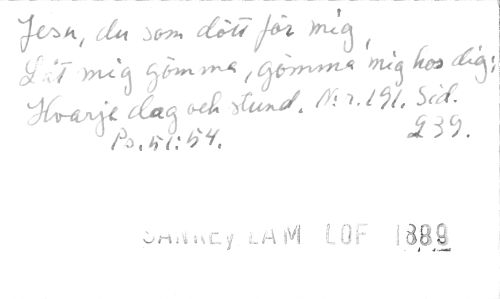 Jesu, du som dött för mig,
Låt mig gömma, gömma mig hos dig;
Hvarje dag och stund. N:r. 191. Sid.
Ps. 51:54. 239.
SANKEY LAM LOF 1889